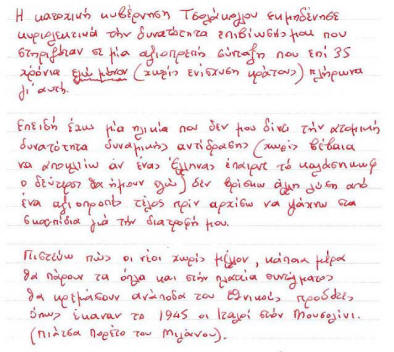 Η κατοχική κυβέρνηση Τσολάκογλου εκμηδένισε
κυριολεκτικά την δυνατότητα επιβίωσής μου που
στηριζόταν σε μία αξιοπρεπή σύνταξη που επί 35
χρόνια εγώ μόνον (χωρίς ενίσχυση κράτους) πλήρωνα
γι' αυτή.
Επειδή έχω μία ηλικία που δεν μου δίνει την ατομική
δυνατότητα δυναμικής αντίδρασης (χωρίς βέβαια
να αποκλείω αν ένας Έλληνας έπαιρνε το καλάσνικωφ
ο δεύτερος θα ήμουν εγώ) δεν βρίσκω άλλη λύση από
ένα αξιοπρεπές τέλος πριν αρχίσω να ψάχνω στα
σκουπίδια για την διατροφή μου.
Πιστεύω πως οι νέοι χωρίς μέλλον, κάποια μέρα
θα πάρουν τα όπλα και στην πλατεία συντάγματος
θα κρεμάσουν ανάποδα τους εθνικούς προδότες
όπως έκαναν το 1945 οι Ιταλοί στον Μουσολίνι.
(Πιάτσα Πορέτο του Μιλάνου).